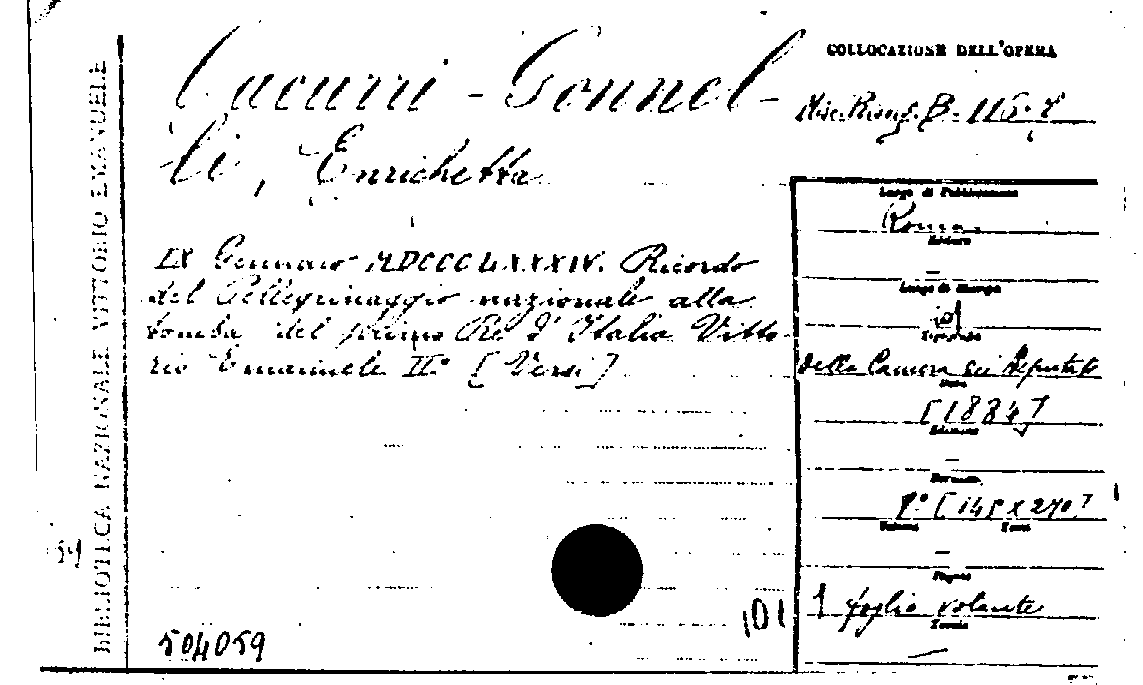 BIBLIOTECA NAZIONALE VITTORIO EMANUELE
Cucurri - Gonnel-
li, Enrichetta
IX Gennaio MDCCCLXXXIV. Ricordo
del Pellegrinaggio nazionale alla
tomba del primo Re d'Italia Vitto-
rio Emanuele II° [Versi]
504059
101
COLLOCAZIONE DELL'OPERA
Misc. Risorg. B. 116.8
Luogo di Pubblicazione
Roma
Editore
—
Luogo di Stampa
id
Tipografia
della Camera dei Deputati
Data
[1884]
Edizione
—
Formato
8° [145x270]
Volume Tomo
—
Pagine
1 foglio volante
Tavole
—